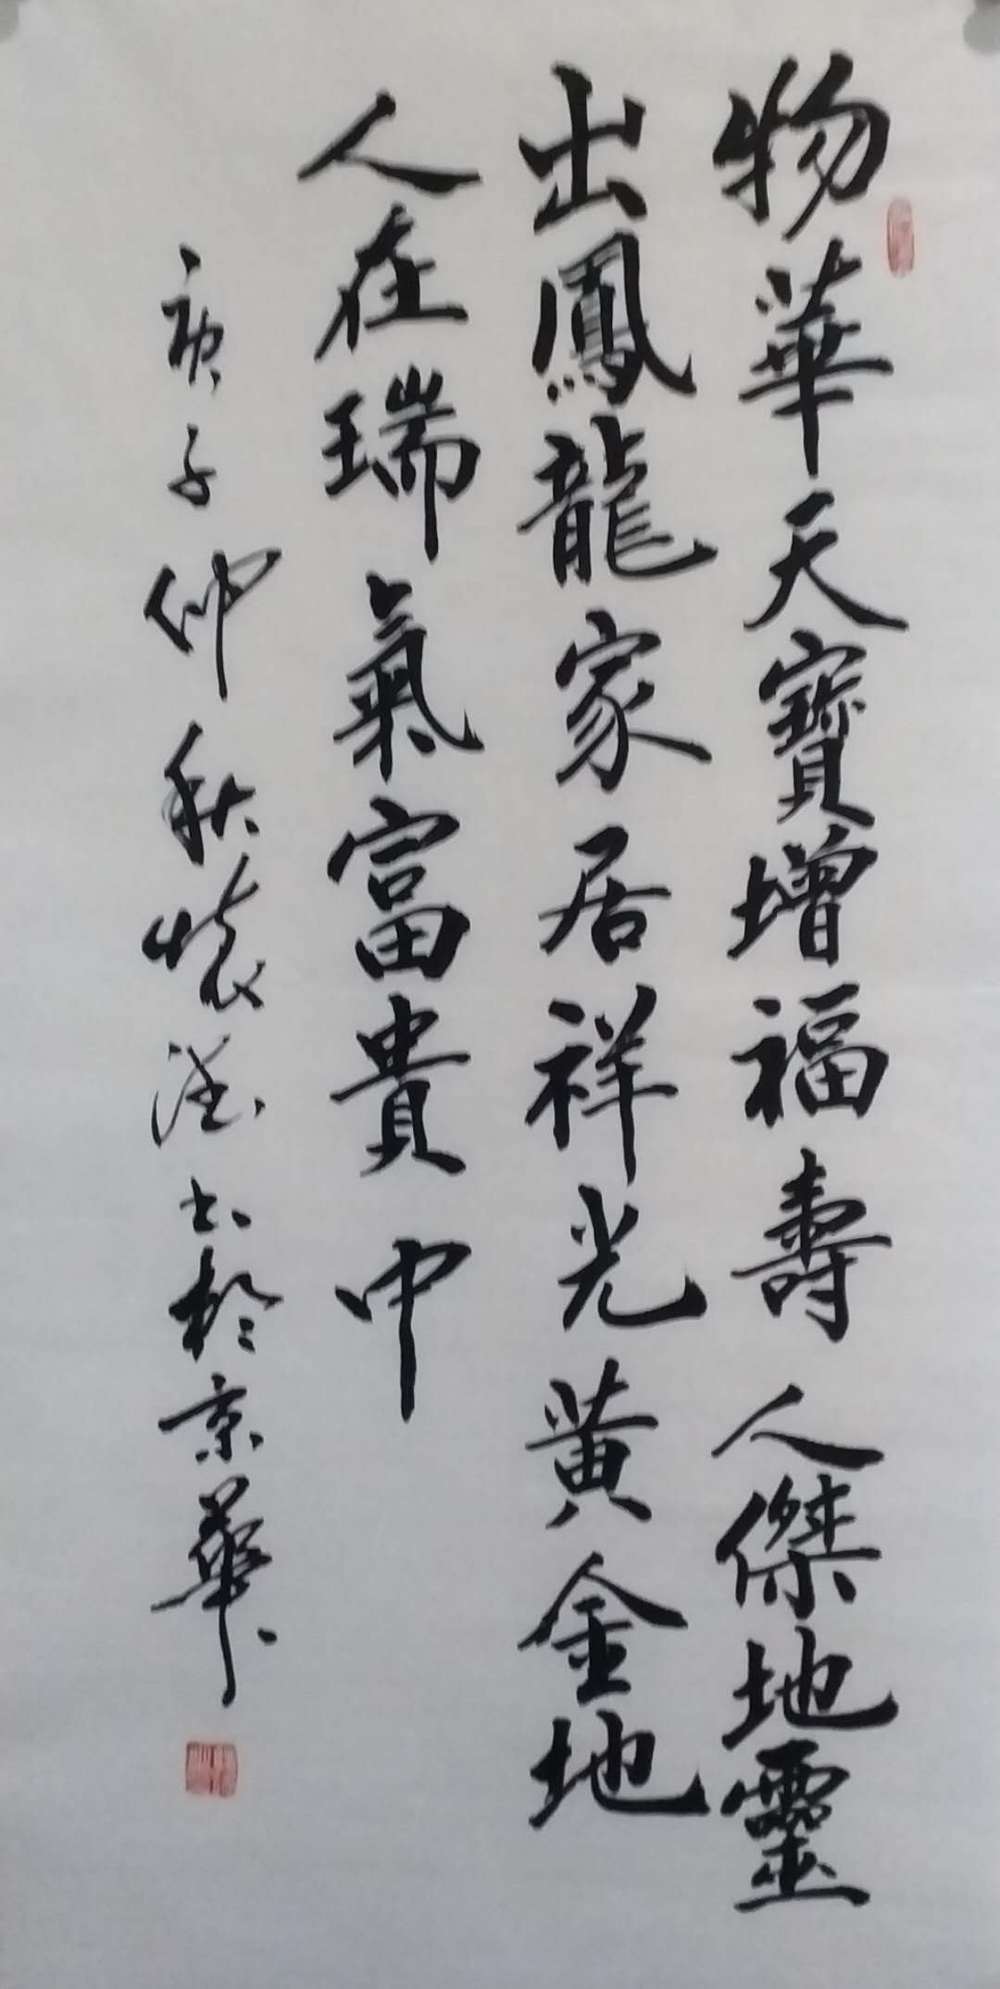 物華天寶增福壽人傑地靈
出鳳龍家居祥光黃金地
人在瑞氣富貴中
庚子仲秋懷瀅書於京華